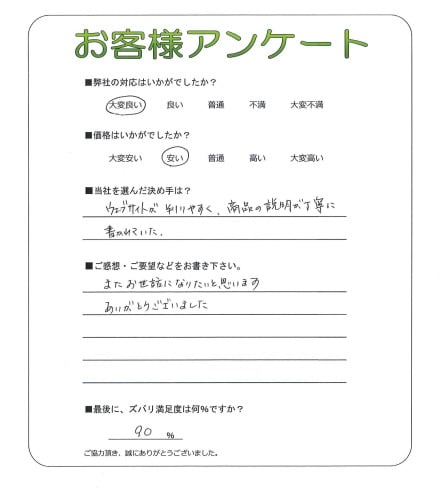 お客様アンケート
■弊社の対応はいかがでしたか？
大変良い 良い 普通 不満 大変不満
■価格はいかがでしたか？
大変安い 安い 普通 高い 大変高い
■当社を選んだ決め手は？
ウェブサイトが判りやすく、商品の説明が丁寧に
書かれていた。
■ご感想・ご要望などをお書き下さい。
またお世話になりたいと思います
ありがとうございました
■最後に、ズバリ満足度は何%ですか？
90 %
ご協力頂き、誠にありがとうございました。